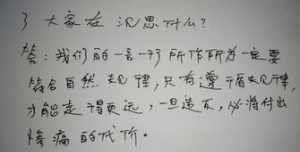 3 大家在沉思什么？
答：我们的一言一行所作所为一定要
符合自然规律，只有遵循规律，
才能走得更远，一旦违反，必将付出
惨痛的代价。